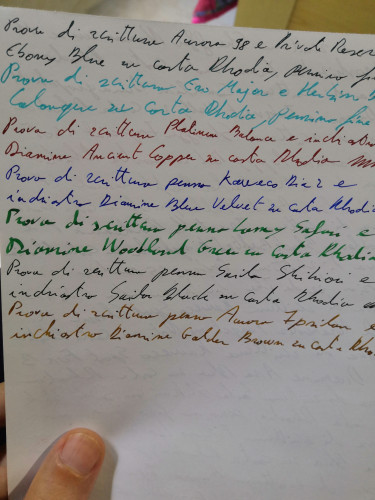 Prova di scrittura Aurora 98 e Private Reser
Ebony Blue su carta Rhodia, pennino fi
Prova di scrittura Ero Major e Herbin
su carta Rhodia, pennino fine
Prova di scrittura Platinum Balance e inchiostro
Diamine Ancient Copper su carta Rhodia
Prova di scrittura penna Kaweco Dia 2 e
inchiostro Diamine Blue Velvet su carta Rhodia
Prova di scrittura penna Lamy Safari e
Diamine Woodland Green su carta Rhodia
Prova di scrittura penna Sailor Shikiori e
inchiostro Sailor Black su carta Rhodia
Prova di scrittura penna Aurora Ipsilon e
inchiostro Diamine Golden Brown su carta Rho